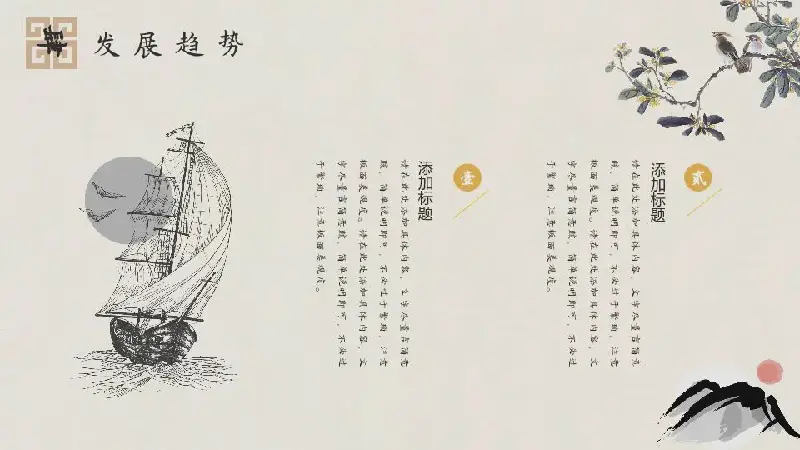 肆
发展趋势
壹
添加标题
请在此处添加具体内容，文字尽量言简意
赅，简单说明即可，不必过于繁琐，注意
板面美观度。请在此处添加具体内容，文
字尽量言简意赅，简单说明即可，不必过
于繁琐，注意板面美观度。
贰
添加标题
请在此处添加具体内容，文字尽量言简意
赅，简单说明即可，不必过于繁琐，注意
板面美观度。请在此处添加具体内容，文
字尽量言简意赅，简单说明即可，不必过
于繁琐，注意板面美观度。